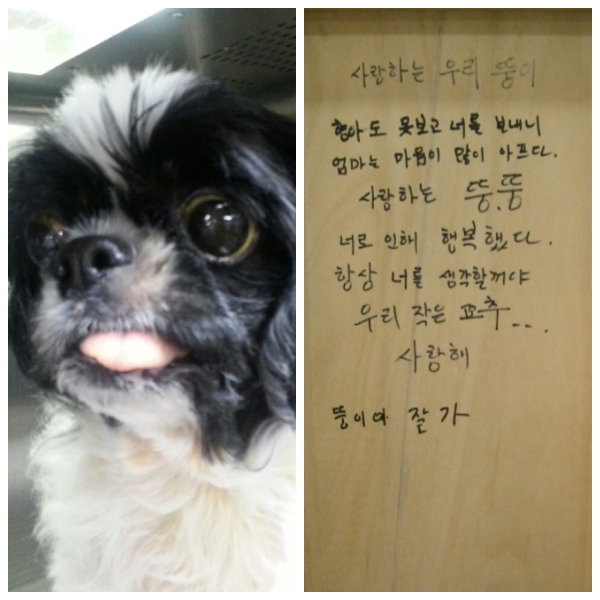 사랑하는 우리 뚱이
형아도 못보고 너를 보내니
엄마는 마음이 많이 아프다.
사랑하는 뚱.뚱
너로 인해 행복했다.
항상 너를 생각할꺼야
우리 작은 꼬추...
사랑해
뚱이야 잘가